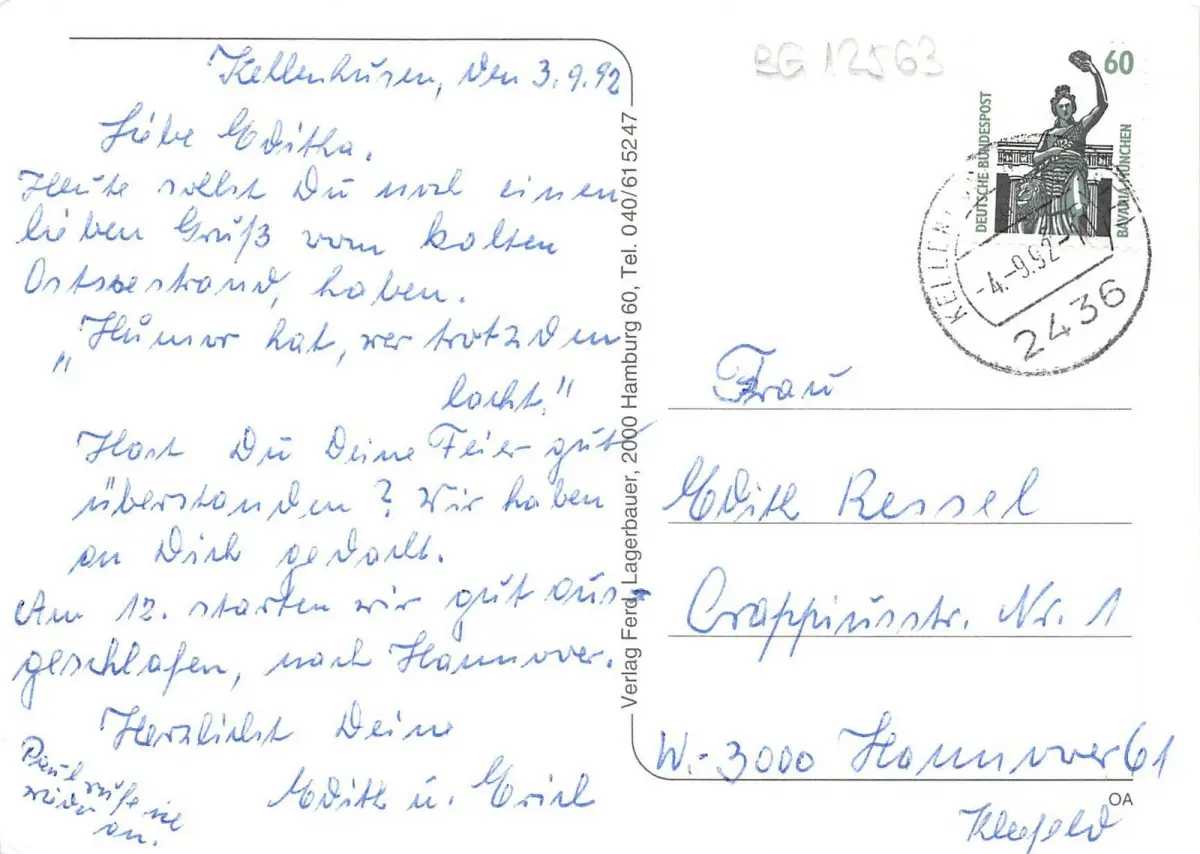 Kellenhusen, den 3.9.92
Liebe Editha.
Heute sollst Du noch einen
lieben Gruß vom kalten
Ostseestrand, haben.
"Humor hat, wer trotzdem
lacht."
Hast Du Deine Feier gut
überstanden? Wir haben
an Dich gedacht.
Am 12. starten wir gut aus-
geschlafen, nach Hannover.
Herzlichst Deine
Edith u. Erich
rufe sie
an.
Verlag Ferd. Lagerbauer, 2000 Hamburg 60, Tel. 040/615247
BG 12563
60
DEUTSCHE BUNDESPOST
BAVARIA MÜNCHEN
-4.-9.92-
2436
Frau
Edith Ressel
Crappiusstr. Nr. 1
W.-3000 Hannover 61
Kleefeld
OA